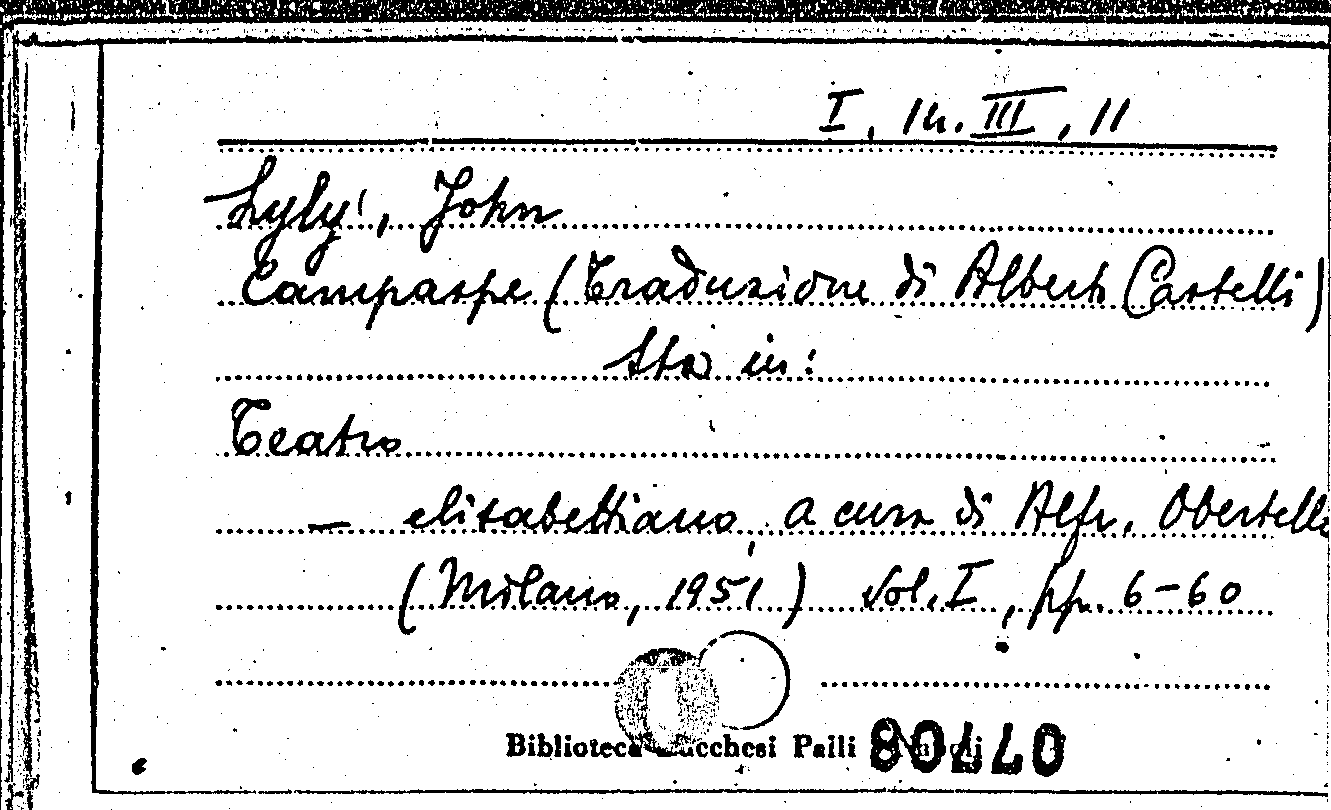 I, III, 11
Lyly, John
Campaspe (Traduzione di Alberto Castelli)
Sta in:
Teatro
— elisabettiano, a cura di Alfr. Obertello
(Milano, 1951) Vol. I, pp. 6-60
Biblioteca Lucchesi Palli Napoli
07708